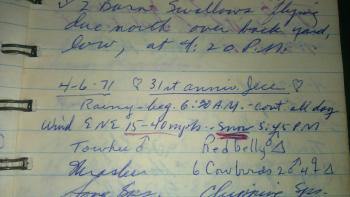 2 Barn Swallows flying
due north over back yard,
low, at 7:20 P.M.
4-6-71 ♡ 31st anniv. Jece ♡
Rainy - beg. 6:30 A.M. - cont all day
Wind E NE 15-40 mph - Snow 5:45 PM
Towhee ♂ Redbelly ♂
Thrasher 6 Cowbirds 2♂ 4♀
Song Sps. Chipping Sps.